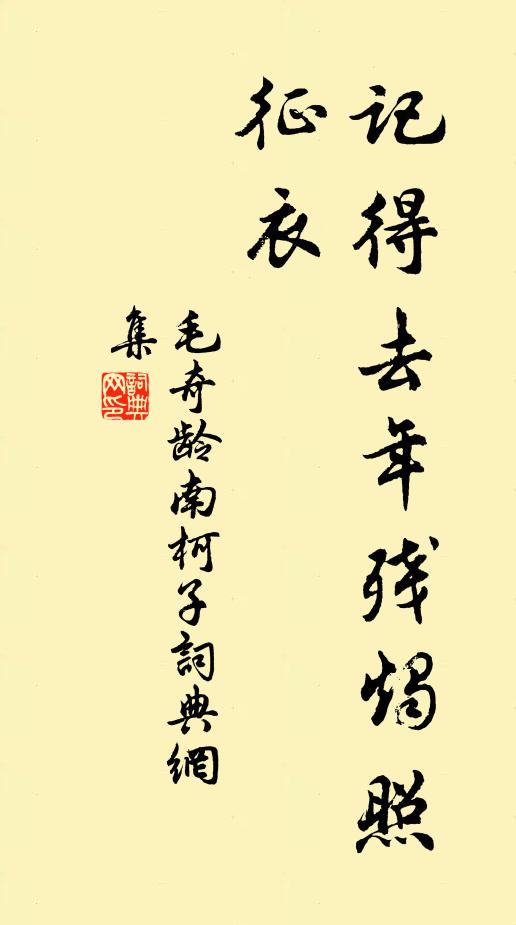 记得去年残烛照
征衣
毛奇龄南柯子詞典網
集
詞典网印